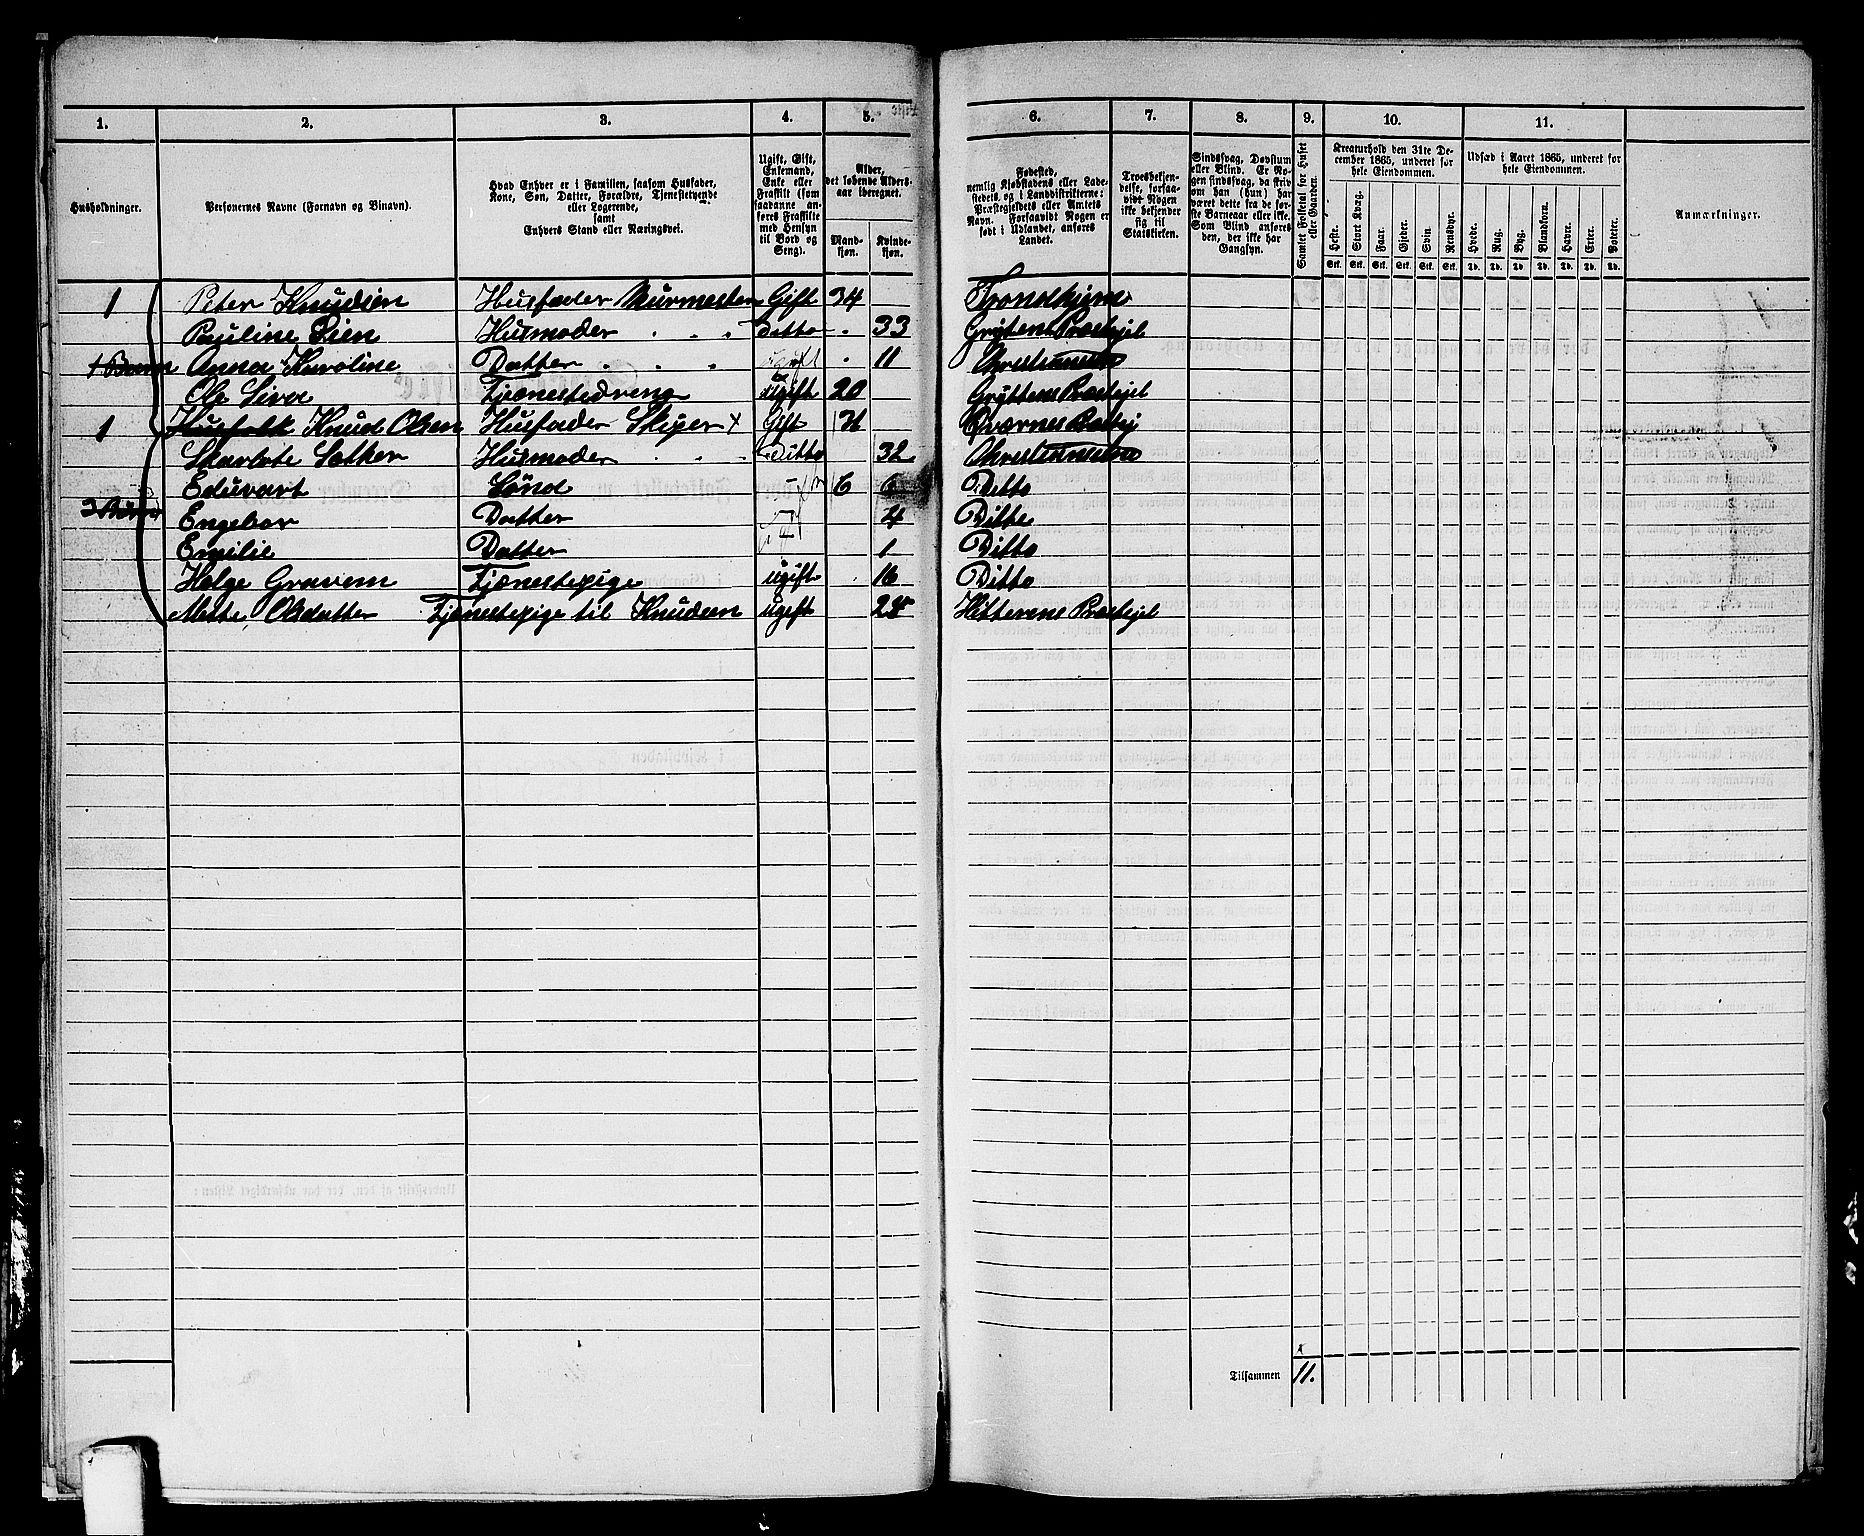 1. 2. 3. 4. 5. 6. 7. 8. 9. 10. 11.
Husholdninger.
Personernes Navne (Fornavn og Binavn).
Hvad Enhver er i Familien, saasom Husfader,
Kone, Søn, Datter, Forældre, Tjenestetyende
eller Logerende,
samt
Enhvers Stand eller Næringsvei.
Ugift, Gift,
Enkemand,
Enke eller
Fraskilt (som
saadanne an-
føres Fraskilte
med Hensyn
til Bord og
Seng).
Alder,
det løbende Alders-
aar iberegnet.
Mand-
kjøn.
Kvinde-
kjøn.
Fødested,
nemlig Kjøbstadens eller Lade-
stedets, og i Landdistrikterne:
Præstegjeldets eller Amtets
Navn. Forsaavidt Nogen er
født i Udlandet, anføres
Landet.
Troesbekjen-
delse, forsaa-
vidt Nogen
ikke bekjender
sig til
Statskirken.
Sindssvag, Døvstum
eller Blind. Er No-
gen sindssvag, da skriv
om han (hun) har
været dette fra de før-
ste Barneaar eller ikke.
Som Blind anføres
den, der ikke har
Gangsyn.
Samlet Folketal for Huset
eller Gaarden.
Kreaturhold den 31te De-
cember 1865, underet for
hele Eiendommen.
Heste. Stort Kvæg. Faar. Gjeder. Svin. Rensdyr.
Stk. Stk. Stk. Stk. Stk. Stk.
Udsæd i Aaret 1865, underet for
hele Eiendommen.
Hvede. Rug. Byg. Blandkorn. Havre. Erter. Poteter.
Td. Td. Td. Td. Td. Td. Td.
Anmærkninger.
1 Peter Knudsen Husfader Murmester Gift 34 Trondhjem
Pauline Lien Husmoder Ditto 33 Grytens Præstejel
1 Barn Anna Karoline Datter ugift 11 Christiansun
Ole Siva Tjænestedreng ugift 20 Gryttens Præstejel
1 Husfolk Knud Olsen Husfader Skiper x Gift 31 Qværnes Præstej
Skarlote Sæther Husmoder Ditto 32 Christiansun
Eduvart Sønd 6 6 Ditto
3 Børn Engebor Datter 4 Ditto
Emilie Datter 1 Ditto
Helge Gravem Tjænestepige ugift 16 Ditto
Mette Olsdatter Tjænestepige til Knudsen ugift 25 Hitterens Præstejel
Tilsammen 11.